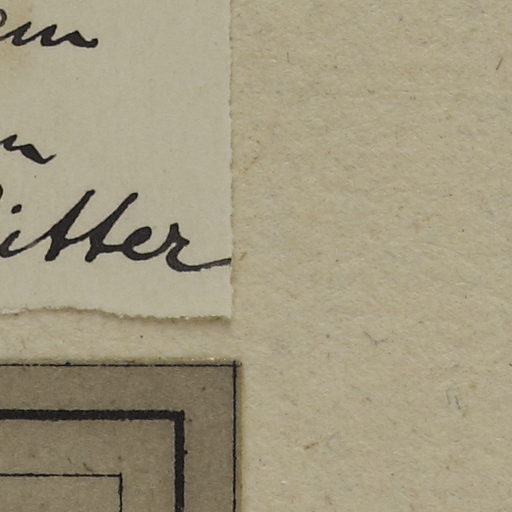 em
n
itter